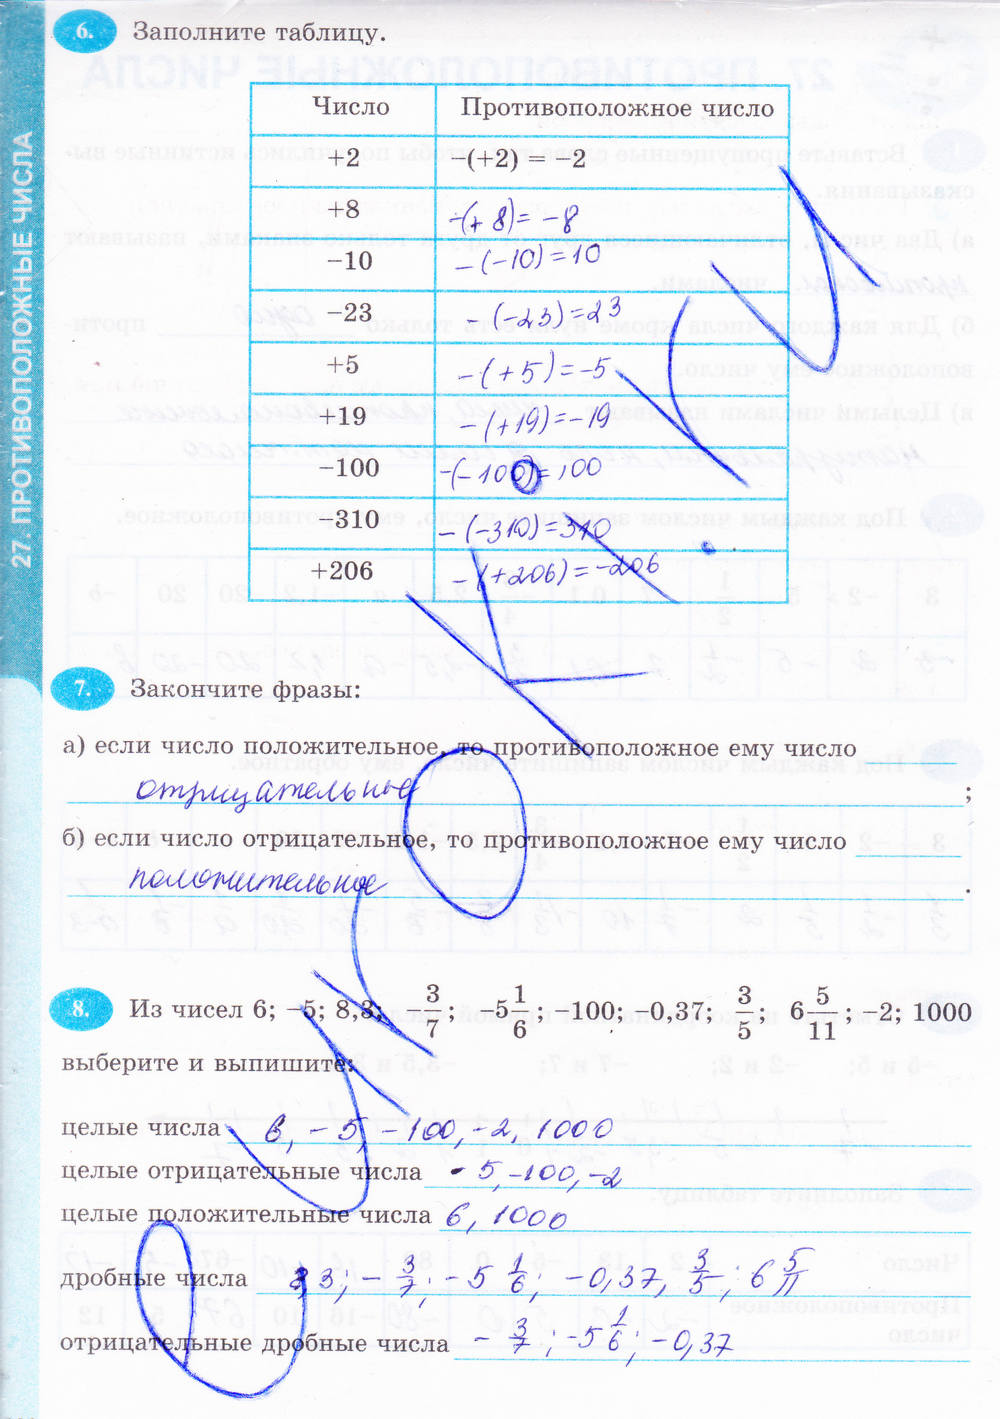 27. ПРОТИВОПОЛОЖНЫЕ ЧИСЛА
6. Заполните таблицу.
Число Противоположное число
+2 −(+2) = −2
+8 -(+8)= -8
−10 -(-10)=10
−23 -(-23)=23
+5 -(+5)=-5
+19 -(+19)=-19
−100 -(-100)=100
−310 -(-310)=310
+206 -(+206)=-206
7. Закончите фразы:
а) если число положительное, то противоположное ему число
отрицательные ;
б) если число отрицательное, то противоположное ему число
положительное .
8. Из чисел 6; −5; 8,3; −3/7; −5 1/6; −100; −0,37; 3/5; 6 5/11; −2; 1000
выберите и выпишите:
целые числа 6, -5, -100, -2, 1000
целые отрицательные числа -5, -100, -2
целые положительные числа 6, 1000
дробные числа 8,3; -3/7; -5 1/6; -0,37, 3/5; 6 5/11
отрицательные дробные числа -3/7; -5 1/6; -0,37